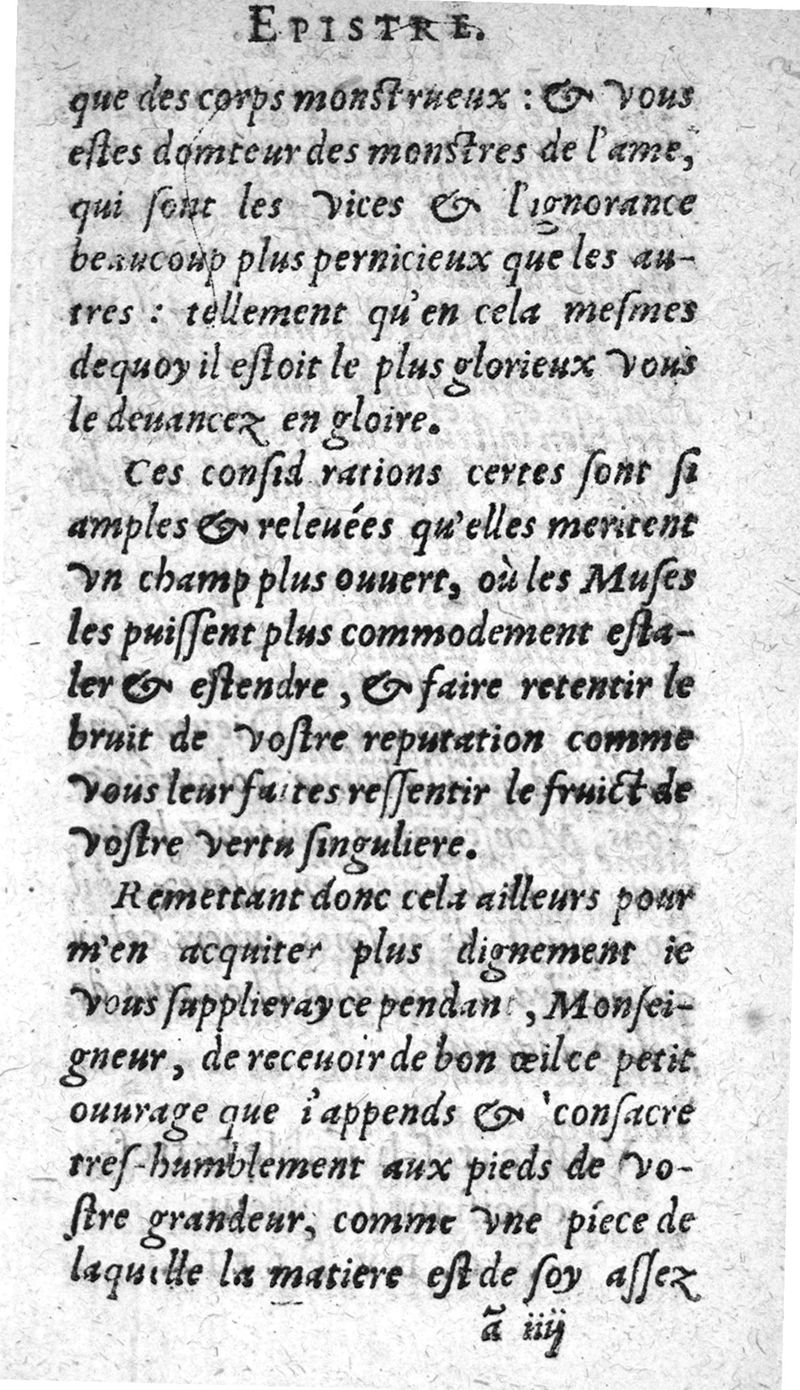 EPISTRE.
que des corps monstrueux : & vous
estes domteur des monstres de l'ame,
qui sont les vices & l'ignorance
beaucoup plus pernicieux que les au-
tres : tellement qu'en cela mesmes
dequoy il estoit le plus glorieux vous
le deuancez en gloire.
Ces consid rations certes sont si
amples & releuées qu'elles meritent
vn champ plus ouuert, où les Muses
les puissent plus commodement esta-
ler & estendre, & faire retentir le
bruit de vostre reputation comme
vous leur faites ressentir le fruict de
vostre vertu singuliere.
Remettant donc cela ailleurs pour
m'en acquiter plus dignement ie
vous supplieray ce pendant, Monsei-
gneur, de receuoir de bon œil ce petit
ouurage que i'appends & consacre
tres-humblement aux pieds de vo-
stre grandeur, comme vne piece de
laquelle la matiere est de soy assez
ã iiij